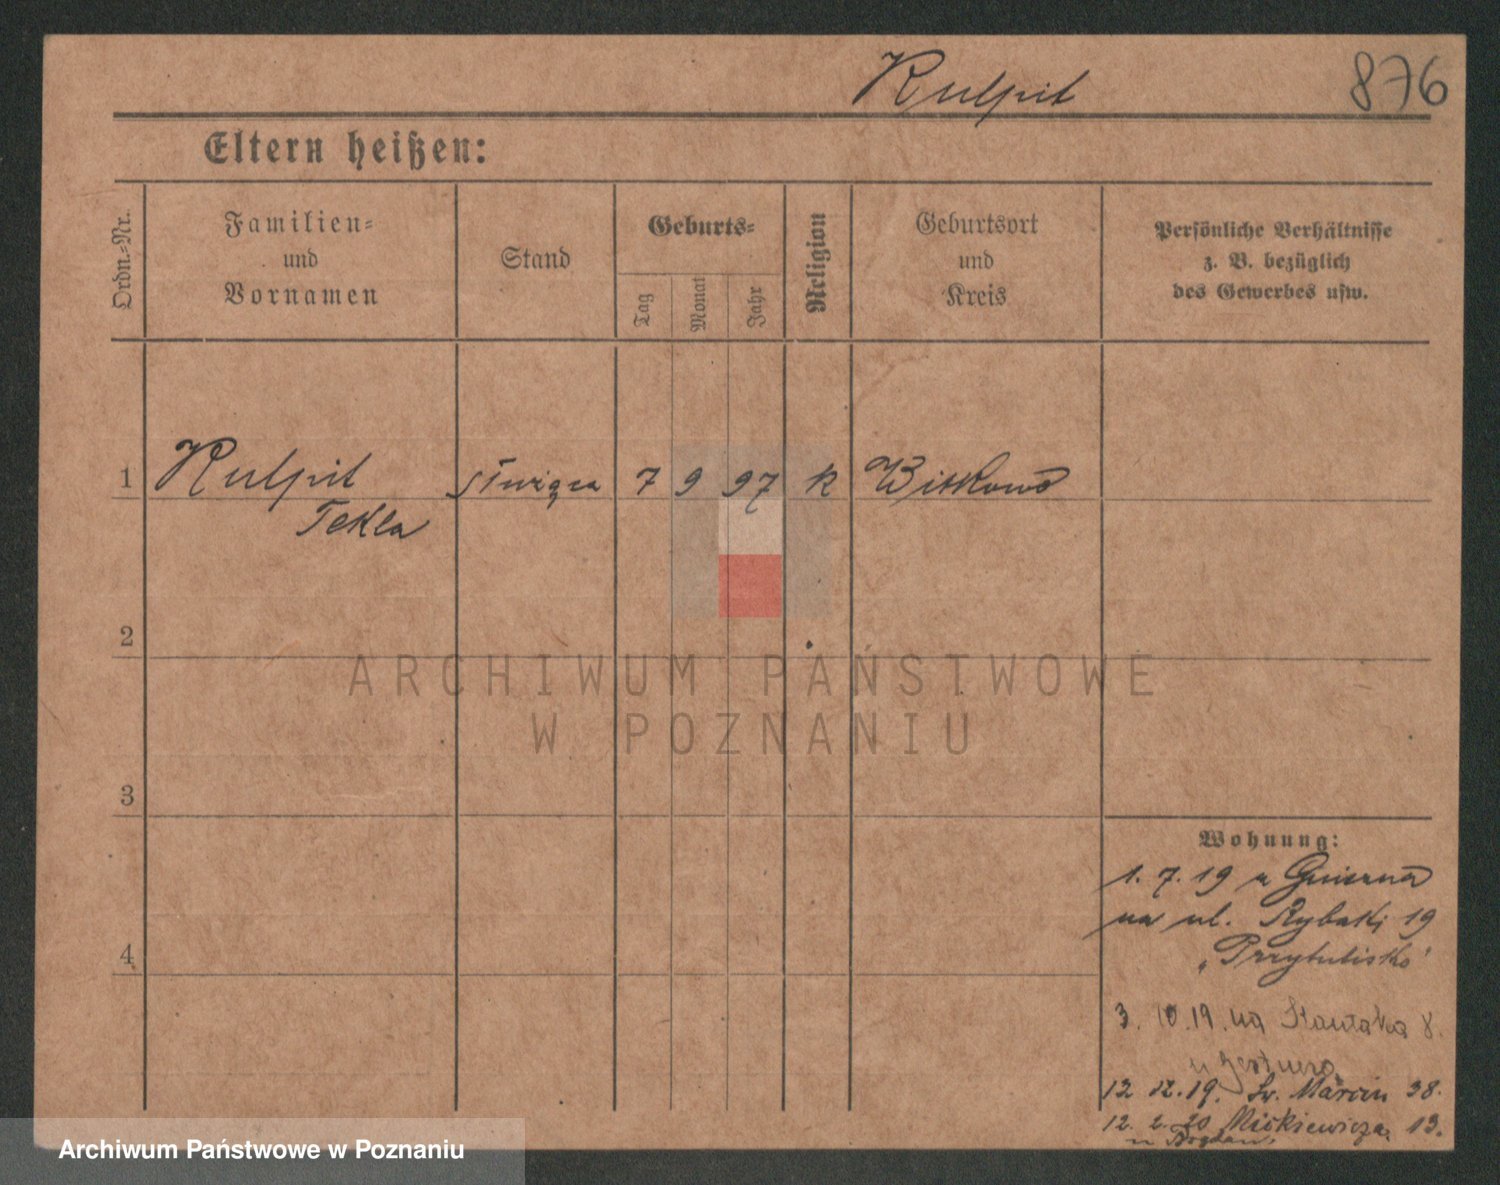 Kulpit 876
Eltern heißen:
Ordn.-Nr.
Familien-
und
Vornamen
Stand
Geburts-
Tag
Monat
Jahr
Religion
Geburtsort
und
Kreis
Persönliche Verhältnisse
z. B. bezüglich
des Gewerbes usw.
1 Kulpit służąca 7 9 97 k Witkowo
Tekla
2
ARCHIWUM PAŃSTWOWE
W POZNANIU
3
Wohnung:
1. 7. 19 z Gniezna
na ul. Rybaki 19
„Przytulisko"
4
3. 10. 19. na 8.
u
12 12. 19. Św. Marcin 38.
12. 2. 20 Mickiewicza 13.
u
Archiwum Państwowe w Poznaniu